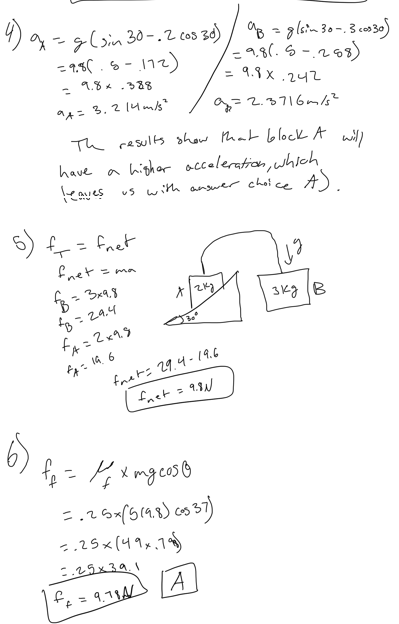 4) a_A = g(sin 30 - .2 cos 30)
= 9.8(.5 - .172)
= 9.8 x .388
a_A = 3.214 m/s²
a_B = g(sin 30 - .3 cos 30)
= 9.8(.5 - .258)
= 9.8 x .242
a_B = 2.3716 m/s²
The results show that block A will
have a higher acceleration, which
leaves us with answer choice A).
5) f_T = f_net
f_net = ma
f_B = 3x9.8
f_B = 29.4
f_A = 2x9.8
f_A = 19.6
A 2kg
30°
g
3kg B
f_net = 29.4 - 19.6
f_net = 9.8N
6) f_f = μ_f x mg cosθ
= .25x(5(9.8) cos 37)
= .25x(49x.798)
= .25x39.1
f_f = 9.78N
A